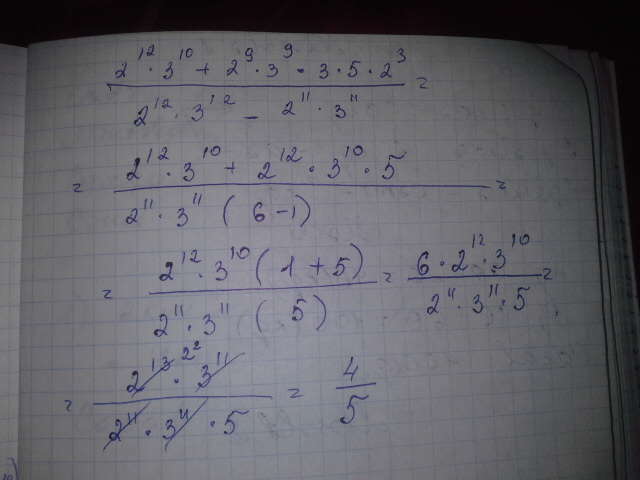 2^12 · 3^10 + 2^9 · 3^9 · 3 · 5 · 2^3 =
2^12 · 3^12 - 2^11 · 3^11
= 2^12 · 3^10 + 2^12 · 3^10 · 5 =
2^11 · 3^11 ( 6 - 1 )
= 2^12 · 3^10 ( 1 + 5 ) = 6 · 2^12 · 3^10 =
2^11 · 3^11 ( 5 ) 2^11 · 3^11 · 5
= 2^13 2^2 · 3^11 = 4
2^11 · 3^11 · 5 5